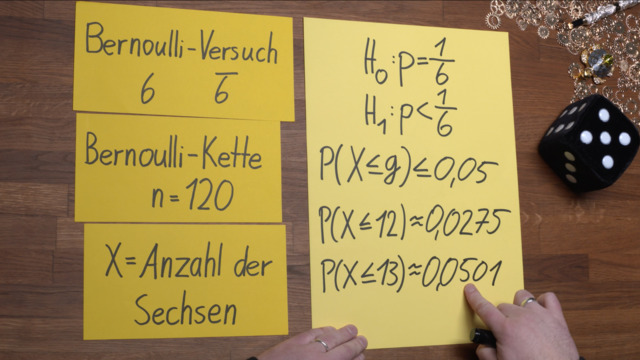 Bernoulli-Versuch
6 6̅
Bernoulli-Kette
n=120
X=Anzahl der
Sechsen
H₀:p=1/6
H₁:p<1/6
P(X≤g)≤0,05
P(X≤12)≈0,0275
P(X≤13)≈0,0501